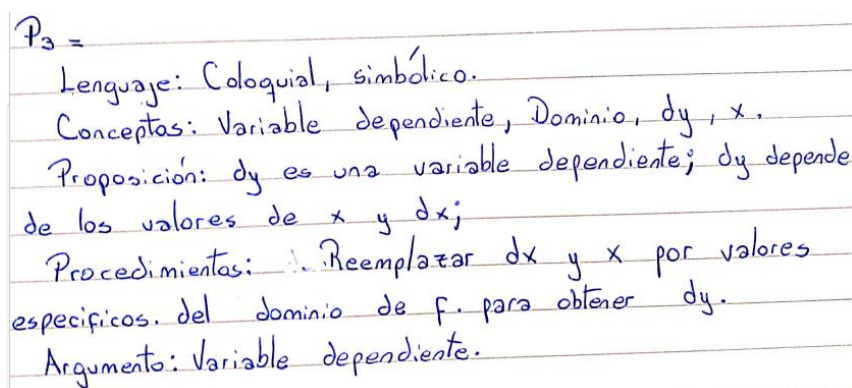 P3 =
Lenguaje: Coloquial, simbólico.
Conceptos: Variable dependiente, Dominio, dy, x.
Proposición: dy es una variable dependiente; dy depende
de los valores de x y dx;
Procedimientos: . Reemplazar dx y x por valores
especificos. del dominio de f. para obtener dy.
Argumento: Variable dependiente.